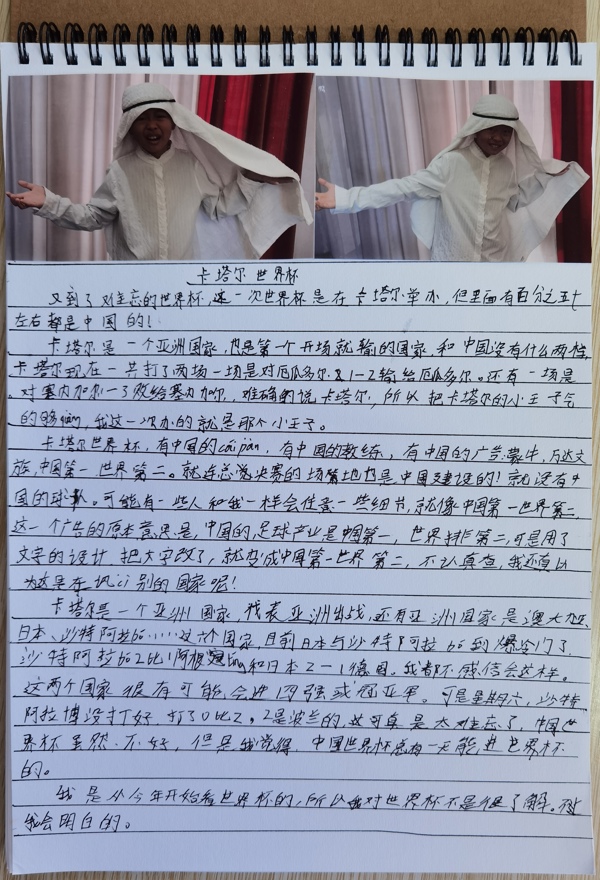 卡塔尔世界杯
又到了难忘的世界杯,这一次世界杯是在卡塔尔举办,但里面有百分之五十
左右都是中国的!
卡塔尔是一个亚洲国家,也是第一个开场就输的国家,和中国没有什么两样,
卡塔尔现在一共打了两场一场是对厄瓜多尔 1-2输给厄瓜多尔。还有一场是
对塞内加尔一了败给塞内加尔,难确的说卡塔尔,所以把卡塔尔的小王子气
的,我这一次办的就是那个小王子。
卡塔尔世界杯,有中国的cái pàn,有中国的教练,有中国的广告:蒙牛,万达文
旅,中国第一世界第二。就连总说决赛的场地也是中国建设的!就没有中
国的球队。可能有一些人和我一样会住意一些细节,就像中国第一世界第二,
这一个广告的原本意思是,中国的足球产业是中国第一,世界排第二,可是用了
文字的设计,把大字改了,就变成中国第一世界第二,不认真查,我还真以
为这是在讽cì别的国家呢!
卡塔尔是一个亚洲国家,代表亚洲出战,还有亚洲国家是澳大拉
日本、沙特阿拉伯……这六个国家,目前日本与沙特阿拉伯到爆冷门了,
沙特阿拉伯2比1阿根tíng和日本2-1德国。我都不敢信会这样。
这两个国家很有可能会进四强或冠亚军。可是星期六,沙特
阿拉博没打好,打了0比2。2是波兰的,这可真是太难忘了,中国世
界杯虽然不好,但是我觉得,中国世界杯总有一天能进世界杯
的。
我是从今年开始看世界杯的,所以我对世界杯不是很了解。
我会明白的。